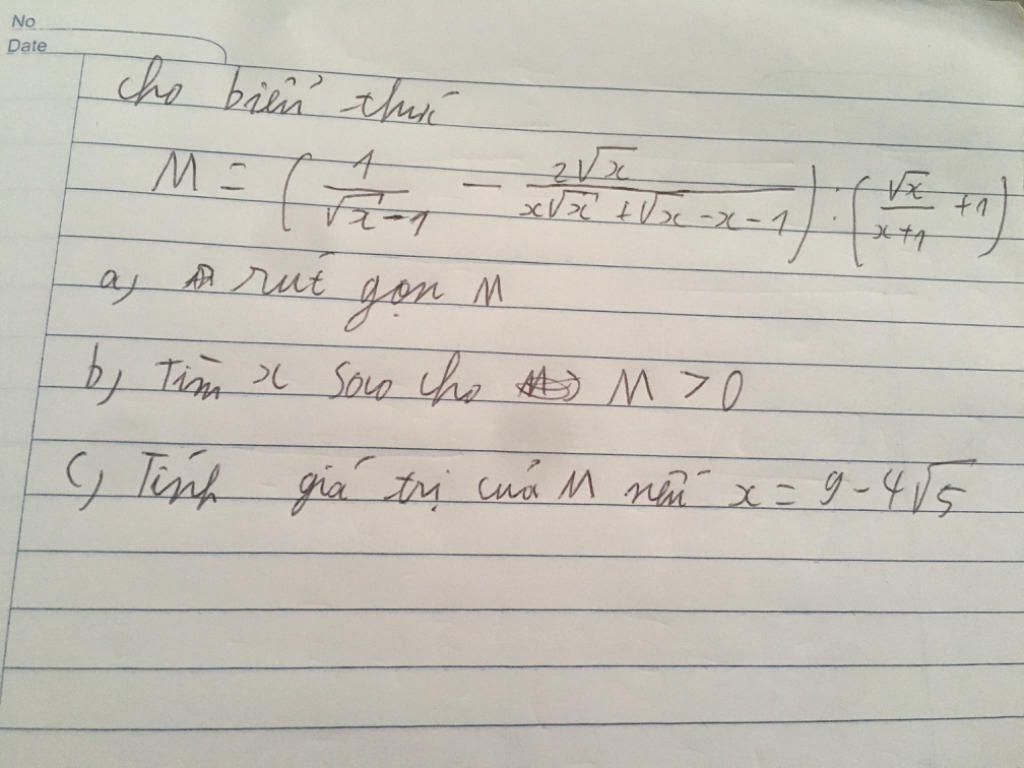 No
Date
cho biểu thức
M = ( 1/(√x - 1) - 2√x/(x√x + √x - x - 1) ) : ( √x/(x+1) + 1 )
a, rút gọn M
b, Tìm x sao cho M > 0
c, Tính giá trị của M nếu x = 9 - 4√5